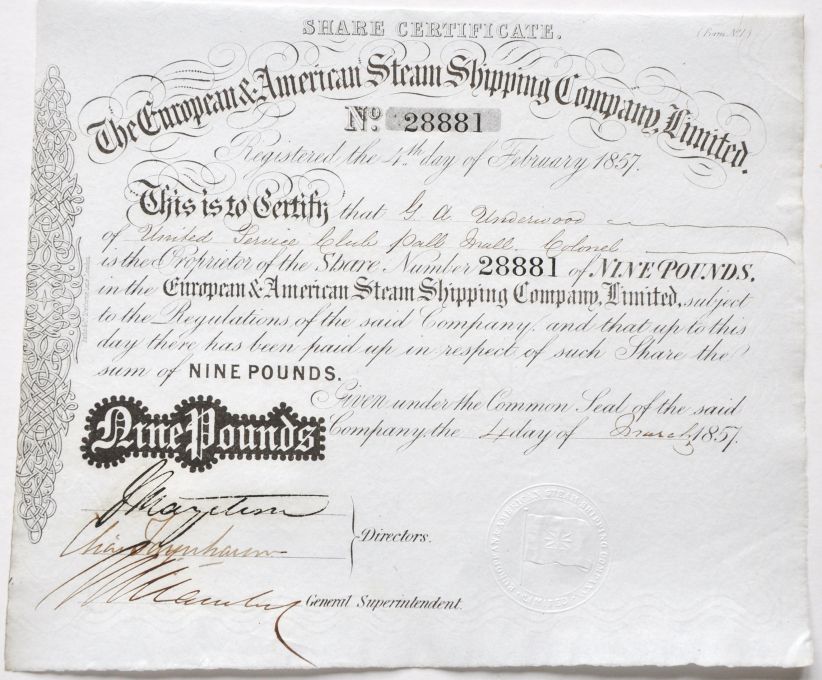 SHARE CERTIFICATE.
(Form No. 1)
The European & American Steam Shipping Company, Limited.
No. 28881
Registered the 4th day of February 1857.
This is to Certify that G. A. Underwood
of United Service Club Pall Mall. Colonel
is the Proprietor of the Share Number 28881 of NINE POUNDS,
in the European & American Steam Shipping Company, Limited, subject
to the Regulations of the said Company, and that up to this
day there has been paid up in respect of such Share the
sum of NINE POUNDS.
Given under the Common Seal of the said
Company, the 4 day of March 1857.
Nine Pounds
Directors.
General Superintendent.
EUROPEAN & AMERICAN STEAM SHIPPING COMPANY
LIMITED